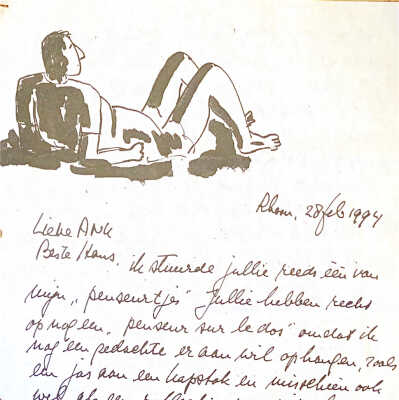 Rhoon, 28 feb 1994
Lieve ANK
Beste Hans, ik stuurde jullie reeds één van
mijn „penseurtjes" Jullie hebben recht
op nog een „penseur sur le dos" omdat ik
nog een gedachte er aan wil ophangen, zoals
een jas aan een kapstok en misschien ook